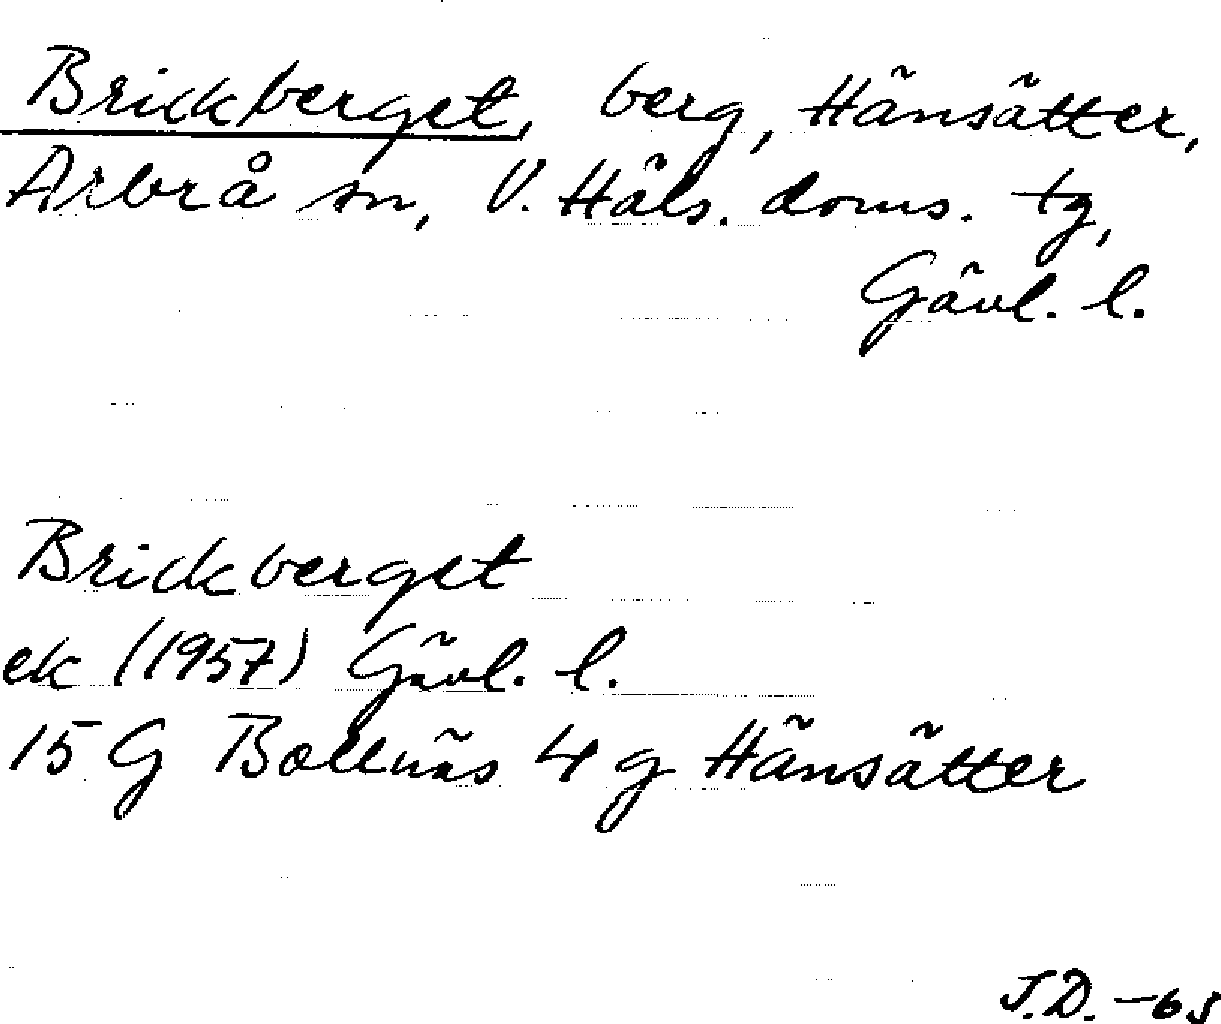 Brickberget, berg, Hänsätter,
Arbrå sn, V. Häls. doms. tg,
Gävl. l.
Brickberget
ek (1957) Gävl. l.
15 G Bollnäs 4 g Hänsätter
J.D. -65